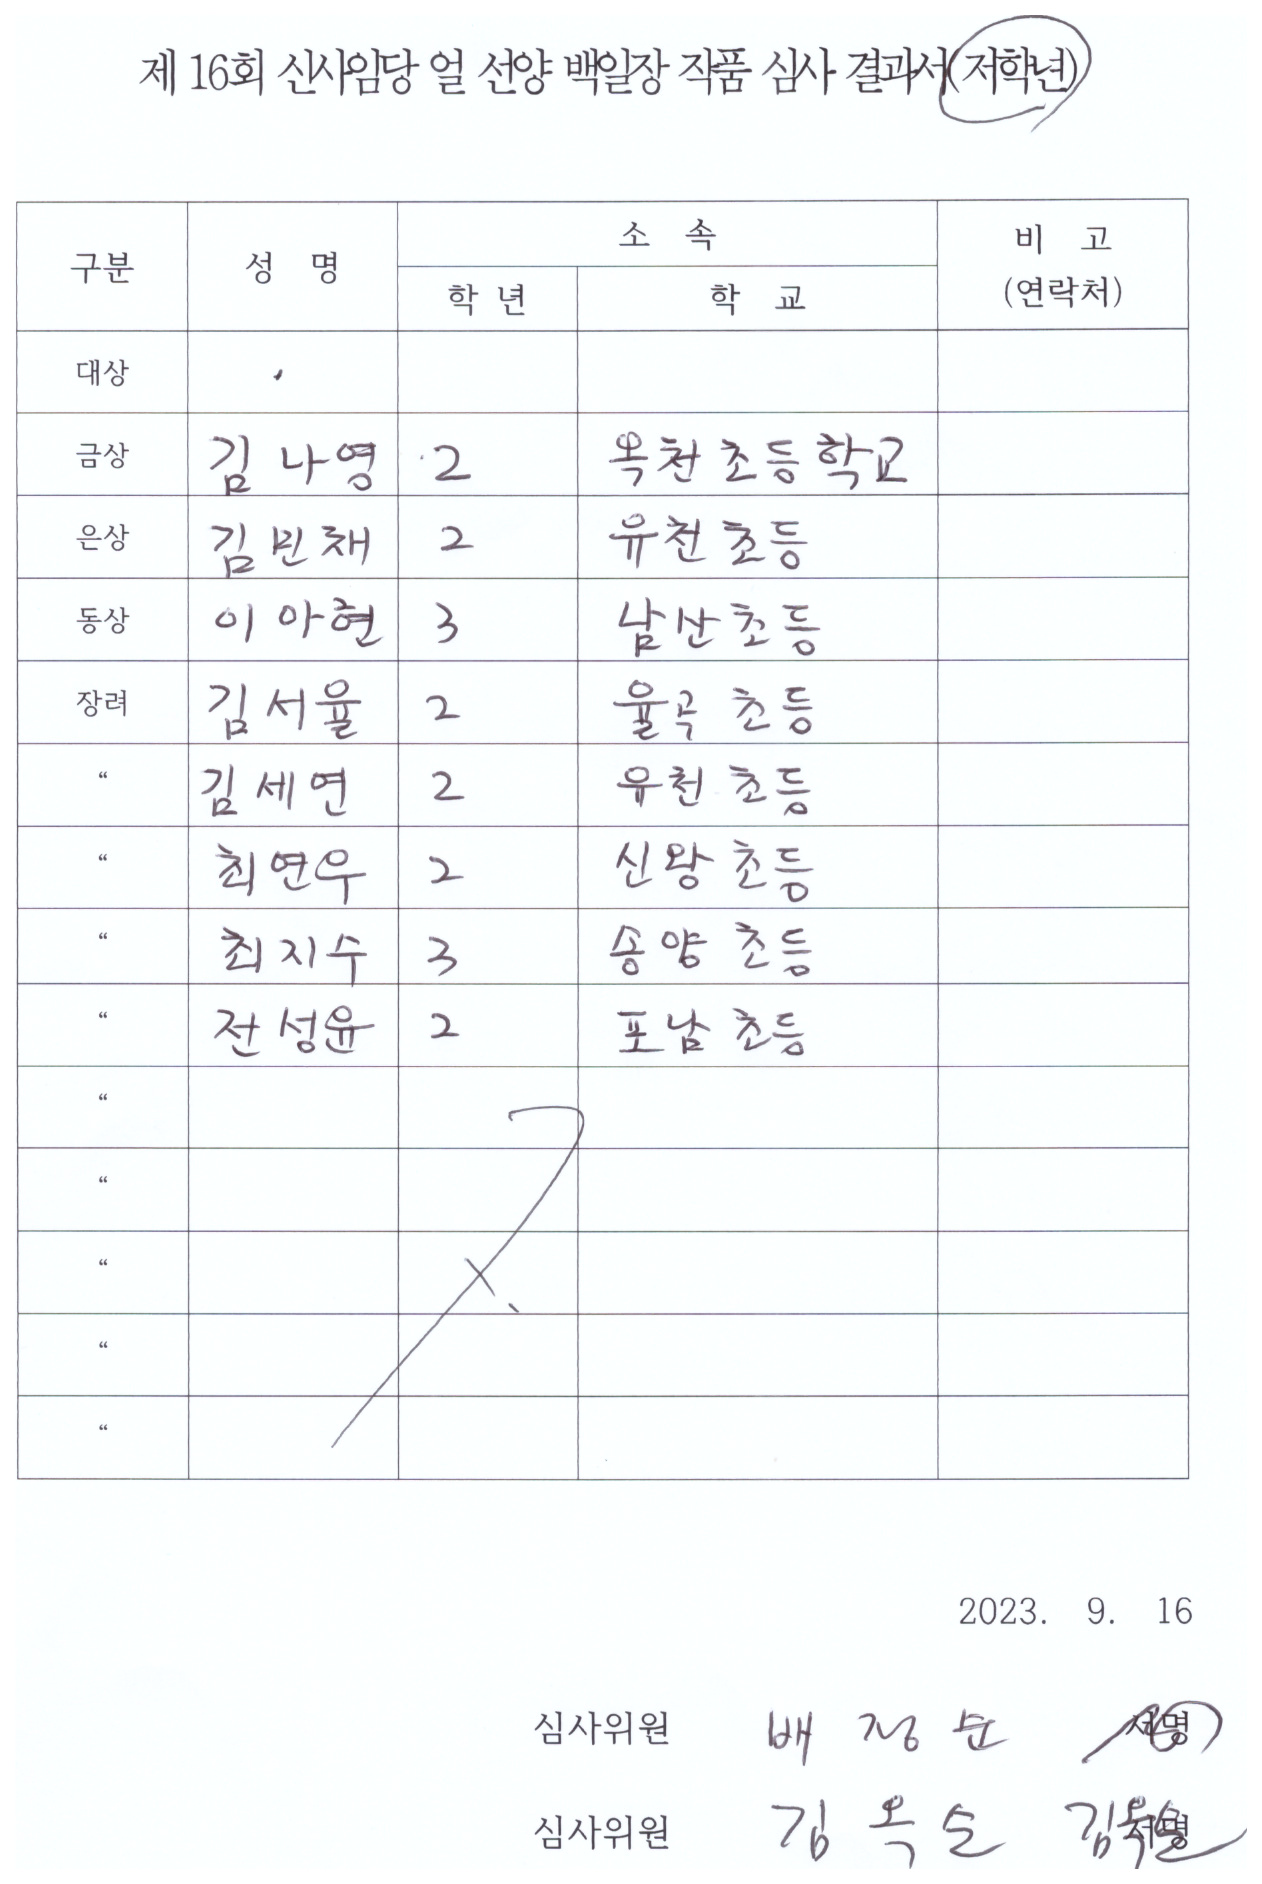 제 16회 신사임당 얼 선양 백일장 작품 심사 결과서(저학년)
구분 성 명 소 속 비 고
(연락처)
학 년 학 교
대상
금상 김나영 2 옥천초등학교
은상 김민채 2 유천초등
동상 이아현 3 남산초등
장려 김서율 2 율곡 초등
“ 김세연 2 유천초등
“ 최연우 2 신왕초등
“ 최지수 3 송양초등
“ 전성윤 2 포남초등
“
“
“
“
“
2023. 9. 16
심사위원 배정순 서명
심사위원 김옥순 김옥순 서명